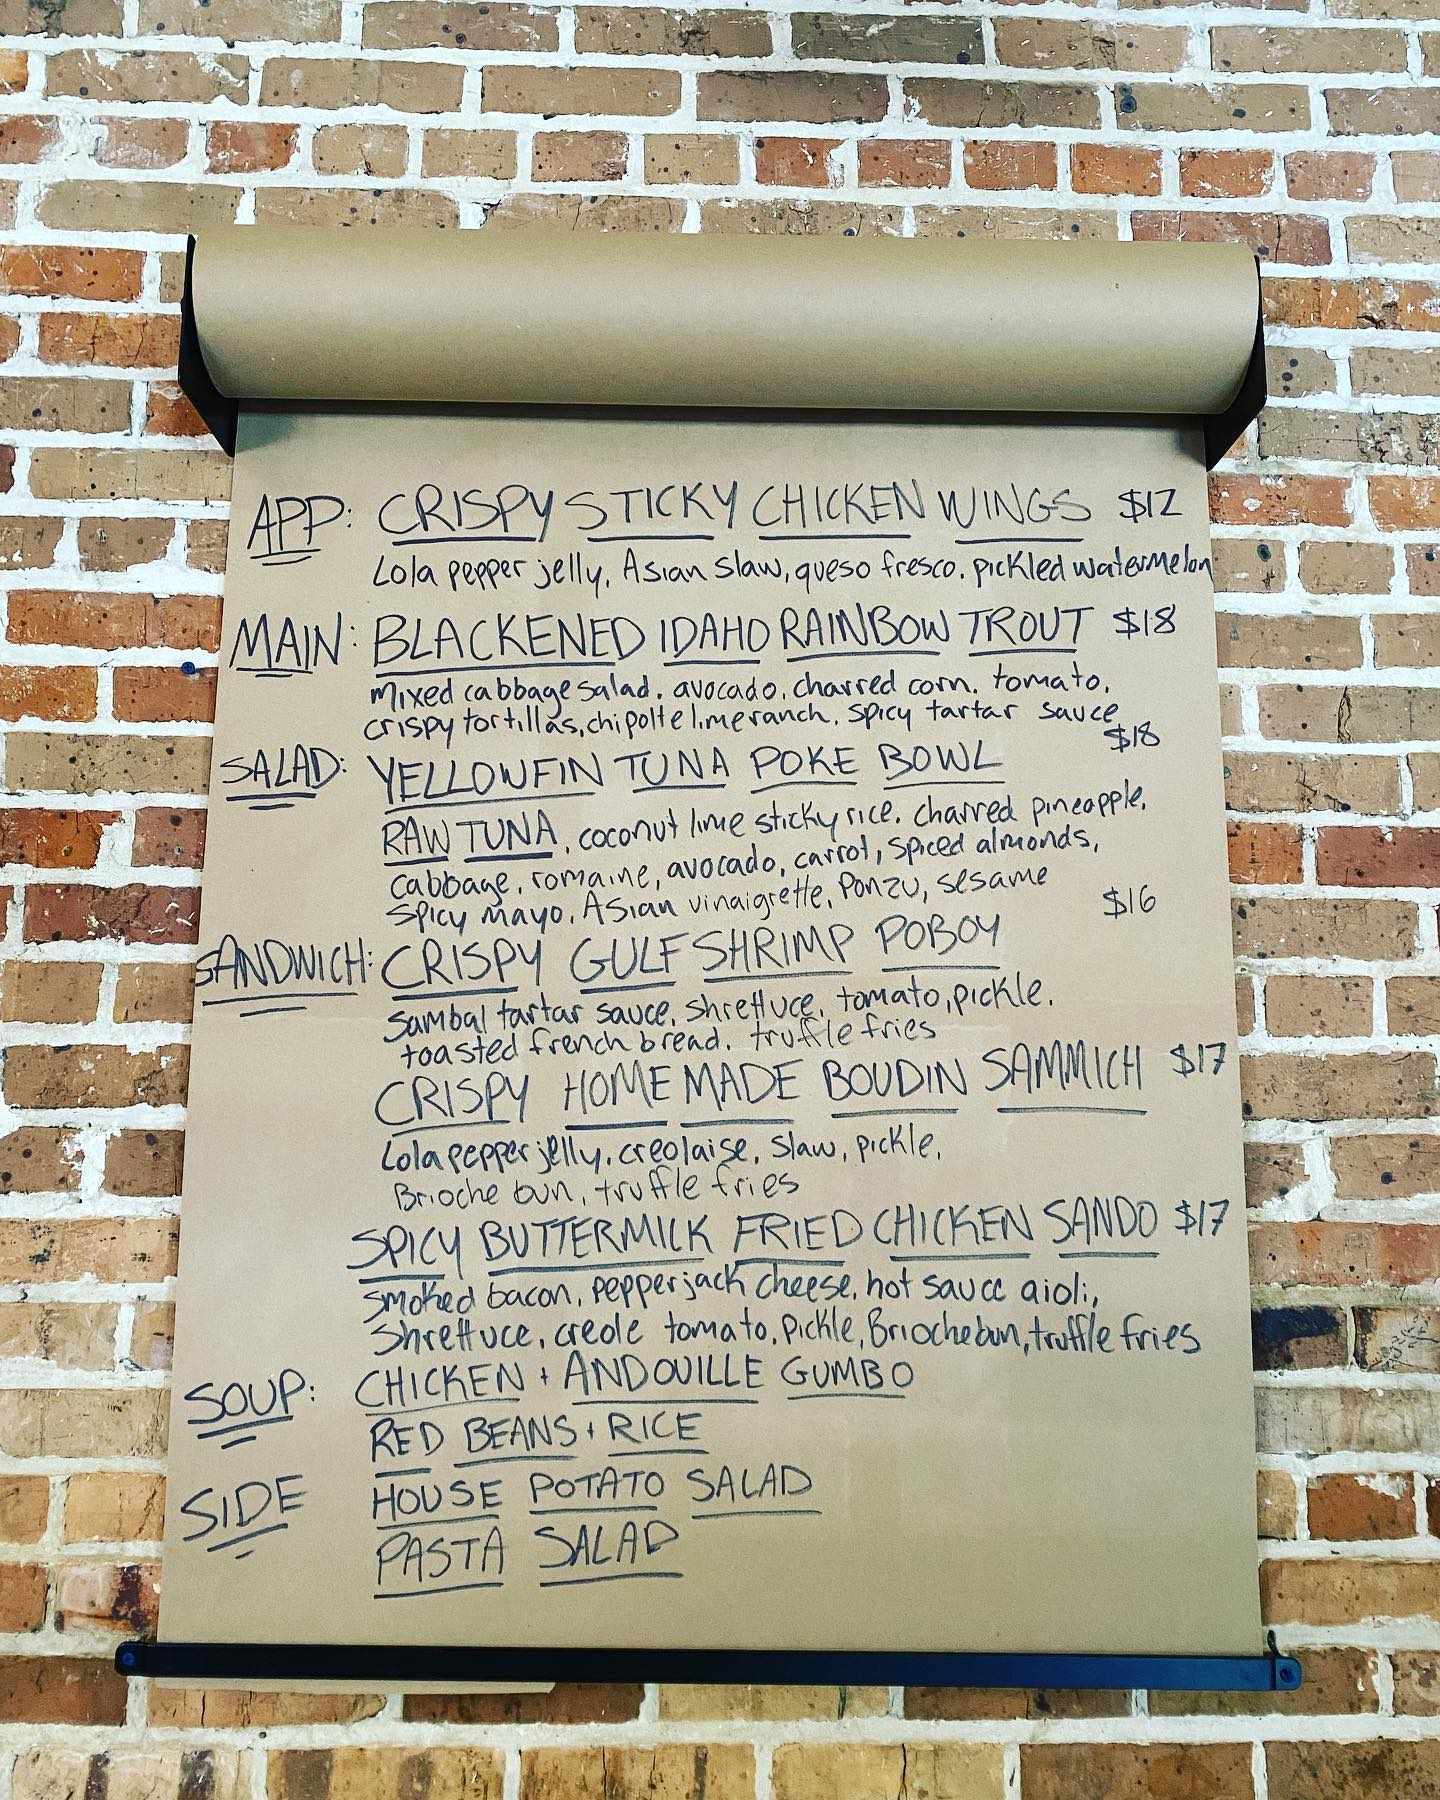 APP: CRISPY STICKY CHICKEN WINGS $12
Lola pepper jelly, Asian slaw, queso fresco, pickled watermelon
MAIN: BLACKENED IDAHO RAINBOW TROUT $18
mixed cabbage salad, avocado, charred corn, tomato,
crispy tortillas, chipolte lime ranch, spicy tartar sauce
SALAD: YELLOWFIN TUNA POKE BOWL $18
RAW TUNA, coconut lime sticky rice, charred pineapple,
cabbage, romaine, avocado, carrot, spiced almonds,
spicy mayo, Asian vinaigrette, ponzu, sesame
SANDWICH: CRISPY GULF SHRIMP POBOY $16
sambal tartar sauce, shrettuce, tomato, pickle,
toasted french bread, truffle fries
CRISPY HOMEMADE BOUDIN SAMMICH $17
Lola pepper jelly, creolaise, slaw, pickle,
Brioche bun, truffle fries
SPICY BUTTERMILK FRIED CHICKEN SANDO $17
smoked bacon, pepperjack cheese, hot sauce aioli,
shrettuce, creole tomato, pickle, Brioche bun, truffle fries
SOUP: CHICKEN + ANDOUILLE GUMBO
RED BEANS + RICE
SIDE HOUSE POTATO SALAD
PASTA SALAD